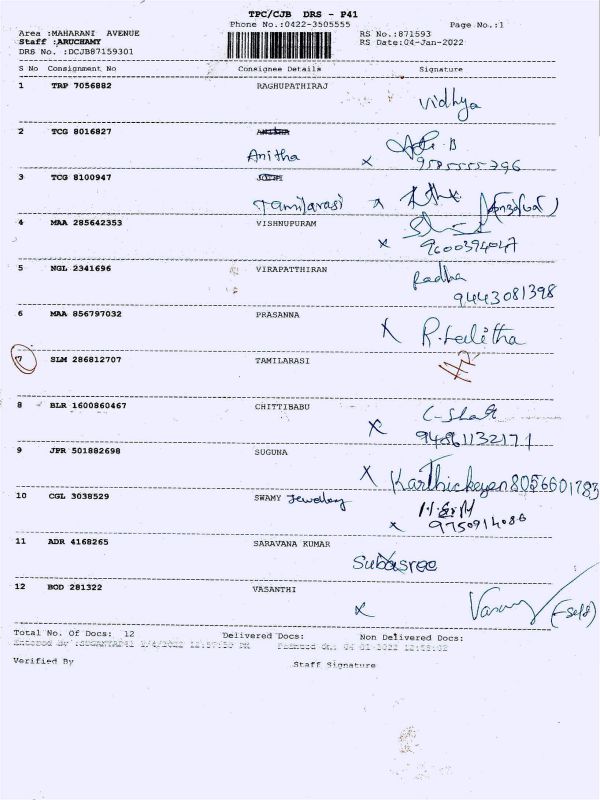 TPC/CJB DRS - P41
Phone No.:0422-3505555 Page No.:1
Area :MAHARANI AVENUE RS No.:871593
Staff :ARUCHAMY RS Date:04-Jan-2022
DRS No. :DCJB87159301
S No Consignment No Consignee Details Signature
1 TRP 7056882 RAGHUPATHIRAJ
Vidhya
2 TCG 8016827
Anitha x 9585555396
3 TCG 8100947
Tamilarasi x
4 MAA 285642353 VISHNUPURAM
x 9600394047
5 NGL 2341696 VIRAPATTHIRAN Radha
9443081398
6 MAA 856797032 PRASANNA
x R.Lalitha
7 SLM 286812707 TAMILARASI
8 BLR 1600860467 CHITTIBABU
x 94861 32171
9 JPR 501882698 SUGUNA
x Karthickeyan 8056601783
10 CGL 3038529 SWAMY Jewellery
x 9750914086
11 ADR 4168265 SARAVANA KUMAR
Subasree
12 BOD 281322 VASANTHI
x (-self)
Total No. Of Docs: 12 Delivered Docs: Non Delivered Docs:
Verified By Staff Signature